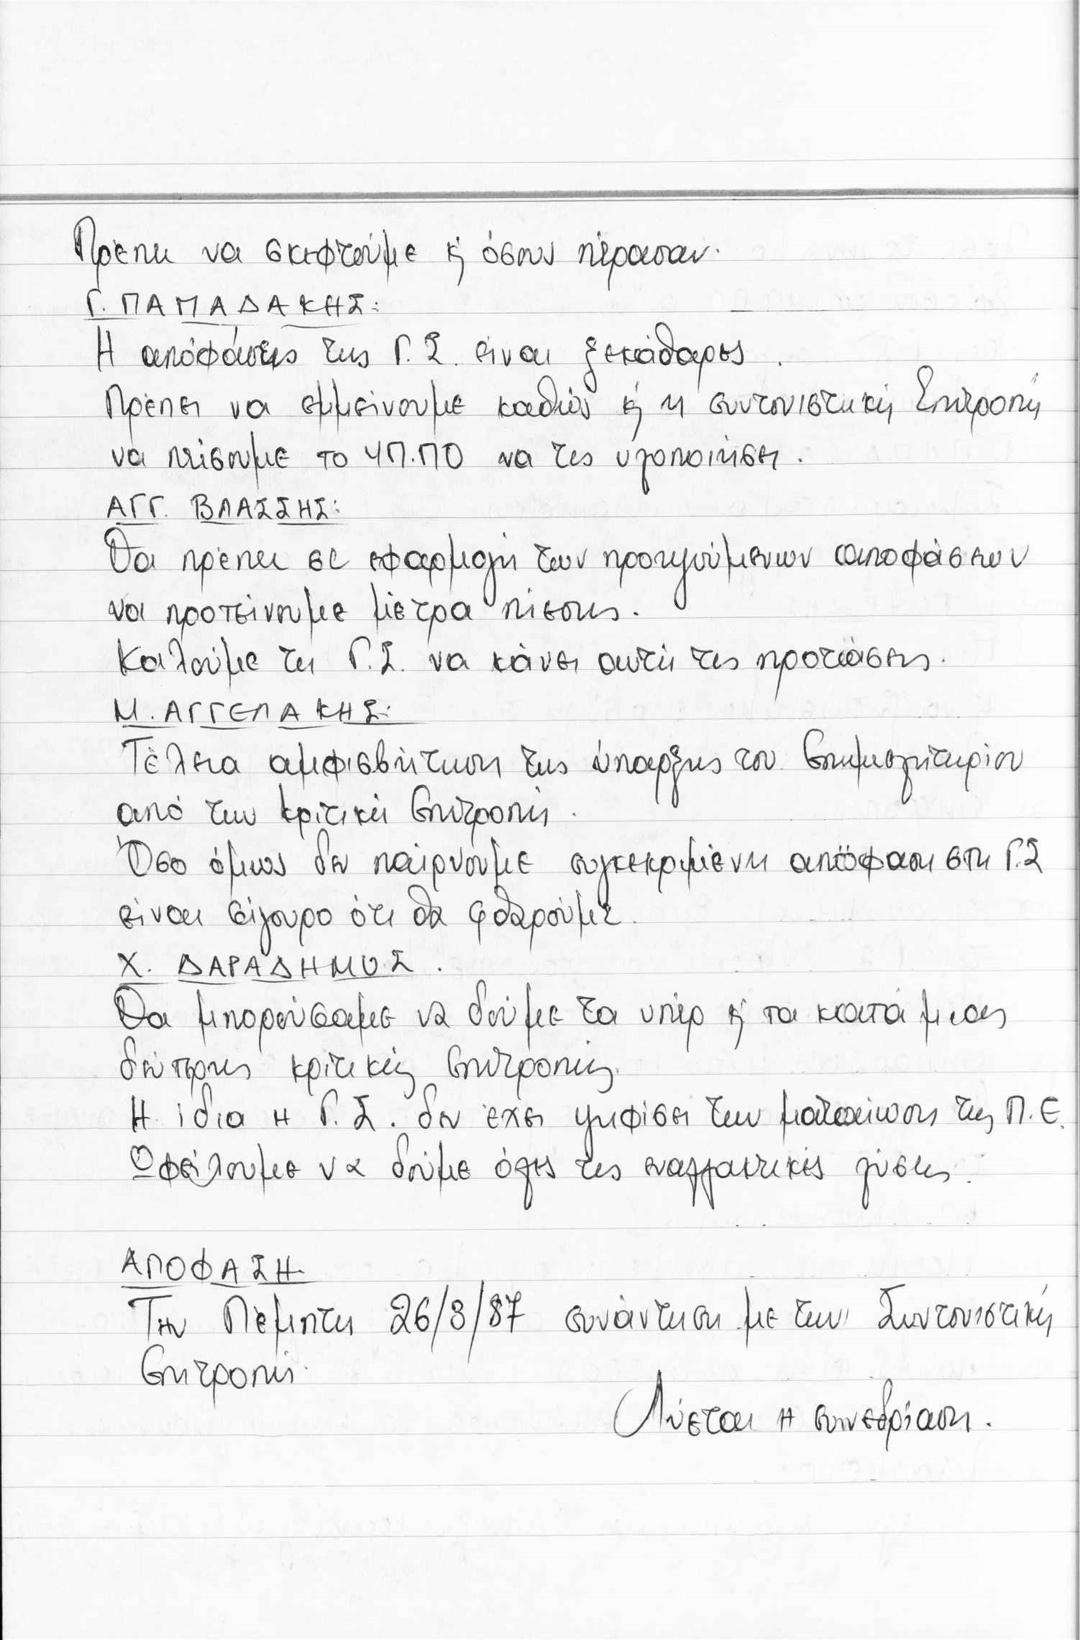 Πρέπει να σκεφτούμε κ' όσους πέρασαν.
Γ. ΠΑΠΑΔΑΚΗΣ:
Η απόφάσεις της Γ.Σ. είναι ξεκάθαρες.
Πρέπει να εμμείνουμε καθώς κ' η συντονιστική Επιτροπή
να πείσουμε το ΥΠ.ΠΟ να τες υλοποιήσει.
ΑΓΓ. ΒΛΑΣΣΗΣ:
Θα πρέπει σε εφαρμογή των προηγούμενων αποφάσεων
να προτείνουμε μέτρα πίεσης.
Καλούμε τη Γ.Σ. να κάνει αυτή τες προτάσεις.
Μ. ΑΓΓΕΛΑΚΗΣ:
Τέλεια αμφισβήτηση της ύπαρξης του Επιμελητηρίου
από την κριτική Επιτροπή.
Όσο όμως δεν παίρνουμε συγκεκριμένη απόφαση στη Γ.Σ
είναι σίγουρο ότι θα φθαρούμε.
Χ. ΔΑΡΑΔΗΜΟΣ.
Θα μπορούσαμε να δούμε τα υπέρ κ' τα κατά μιας
δεύτερης κριτικής Επιτροπής.
Η ίδια η Γ.Σ. δεν έχει ψηφίσει την ματαίωση της Π.Ε.
Οφείλουμε να δούμε όλες τες εναλλακτικές λύσεις.
ΑΠΟΦΑΣΗ
Την Πέμπτη 26/3/87 συνάντηση με την Συντονιστική
Επιτροπή.
Λύεται η συνεδρίαση.